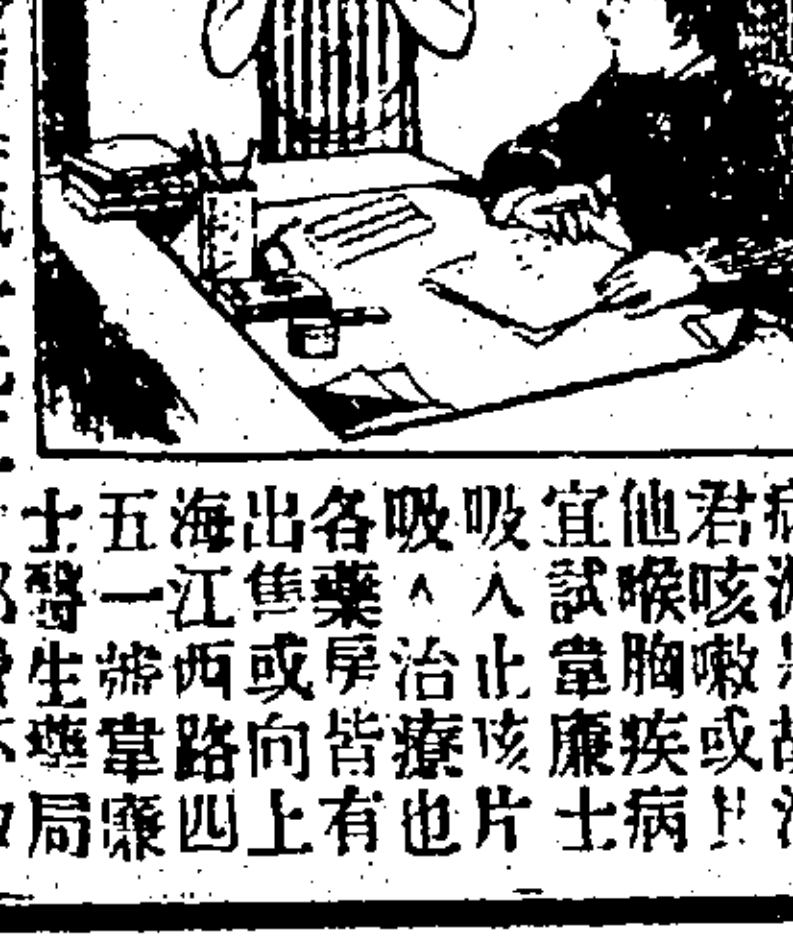 君咳嗽或其
他喉胸疾病
宜試韋廉士
吸入止咳片
吸入治療也
各藥房皆有
出售或向上
海江西路四
五一號韋廉
士醫生藥局